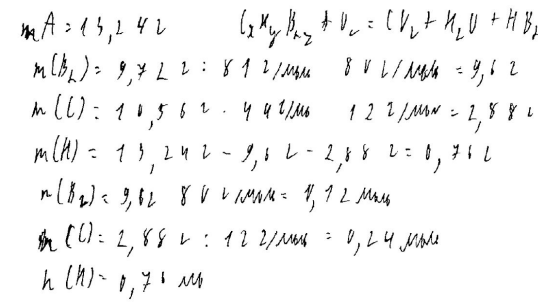 mA = 13,24 г CxHyBrz + O₂ = CO₂ + H₂O + HBr
m(Br) = 9,72 г : 81 г/моль 80 г/моль = 9,6 г
m(C) = 10,56 г . 44 г/мо 12 г/моль = 2,88 г
m(H) = 13,24 г - 9,6 г - 2,88 г = 0,76 г
n(Br) = 9,6 г 80 г/моль = 0,12 моль
n(C) = 2,88 г : 12 г/моль = 0,24 моль
n(H) = 0,76 мо